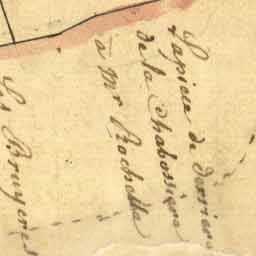 La piece de derriere
de la Chabossiere
à Mr Rochette
Les Bruyeres